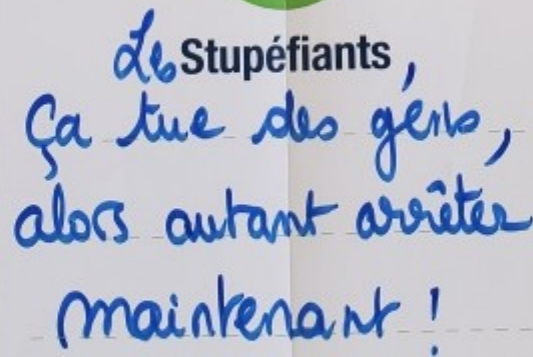 Les Stupéfiants,
Ça tue des géns,
alors autant arrêter
maintenant !